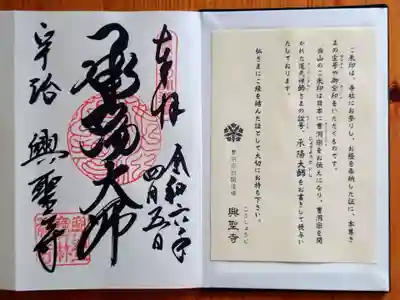 奉拝
令和六年
四月五日
承陽大師
宇治 興聖寺
ご朱印は、寺社にお参りし、お経を奉納した証に、本尊さ
まの宝号や御宝印をいただくものです。
当山のご朱印は日本に曹洞宗をお伝えになり、曹洞宗を開
かれた道元禅師さまの諡号、承陽大師をお書きして授与い
たしております。
仏さまにご縁を結んだ証として大切にお持ち下さい。
興聖寺
こうしょうじ